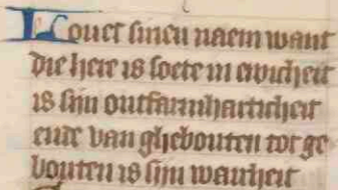 Louet sinen naem want
die here is soete in ewicheit
is sijn ontfarmharticheit
ende van ghebouten tot ge
bouten is sijn wauheit